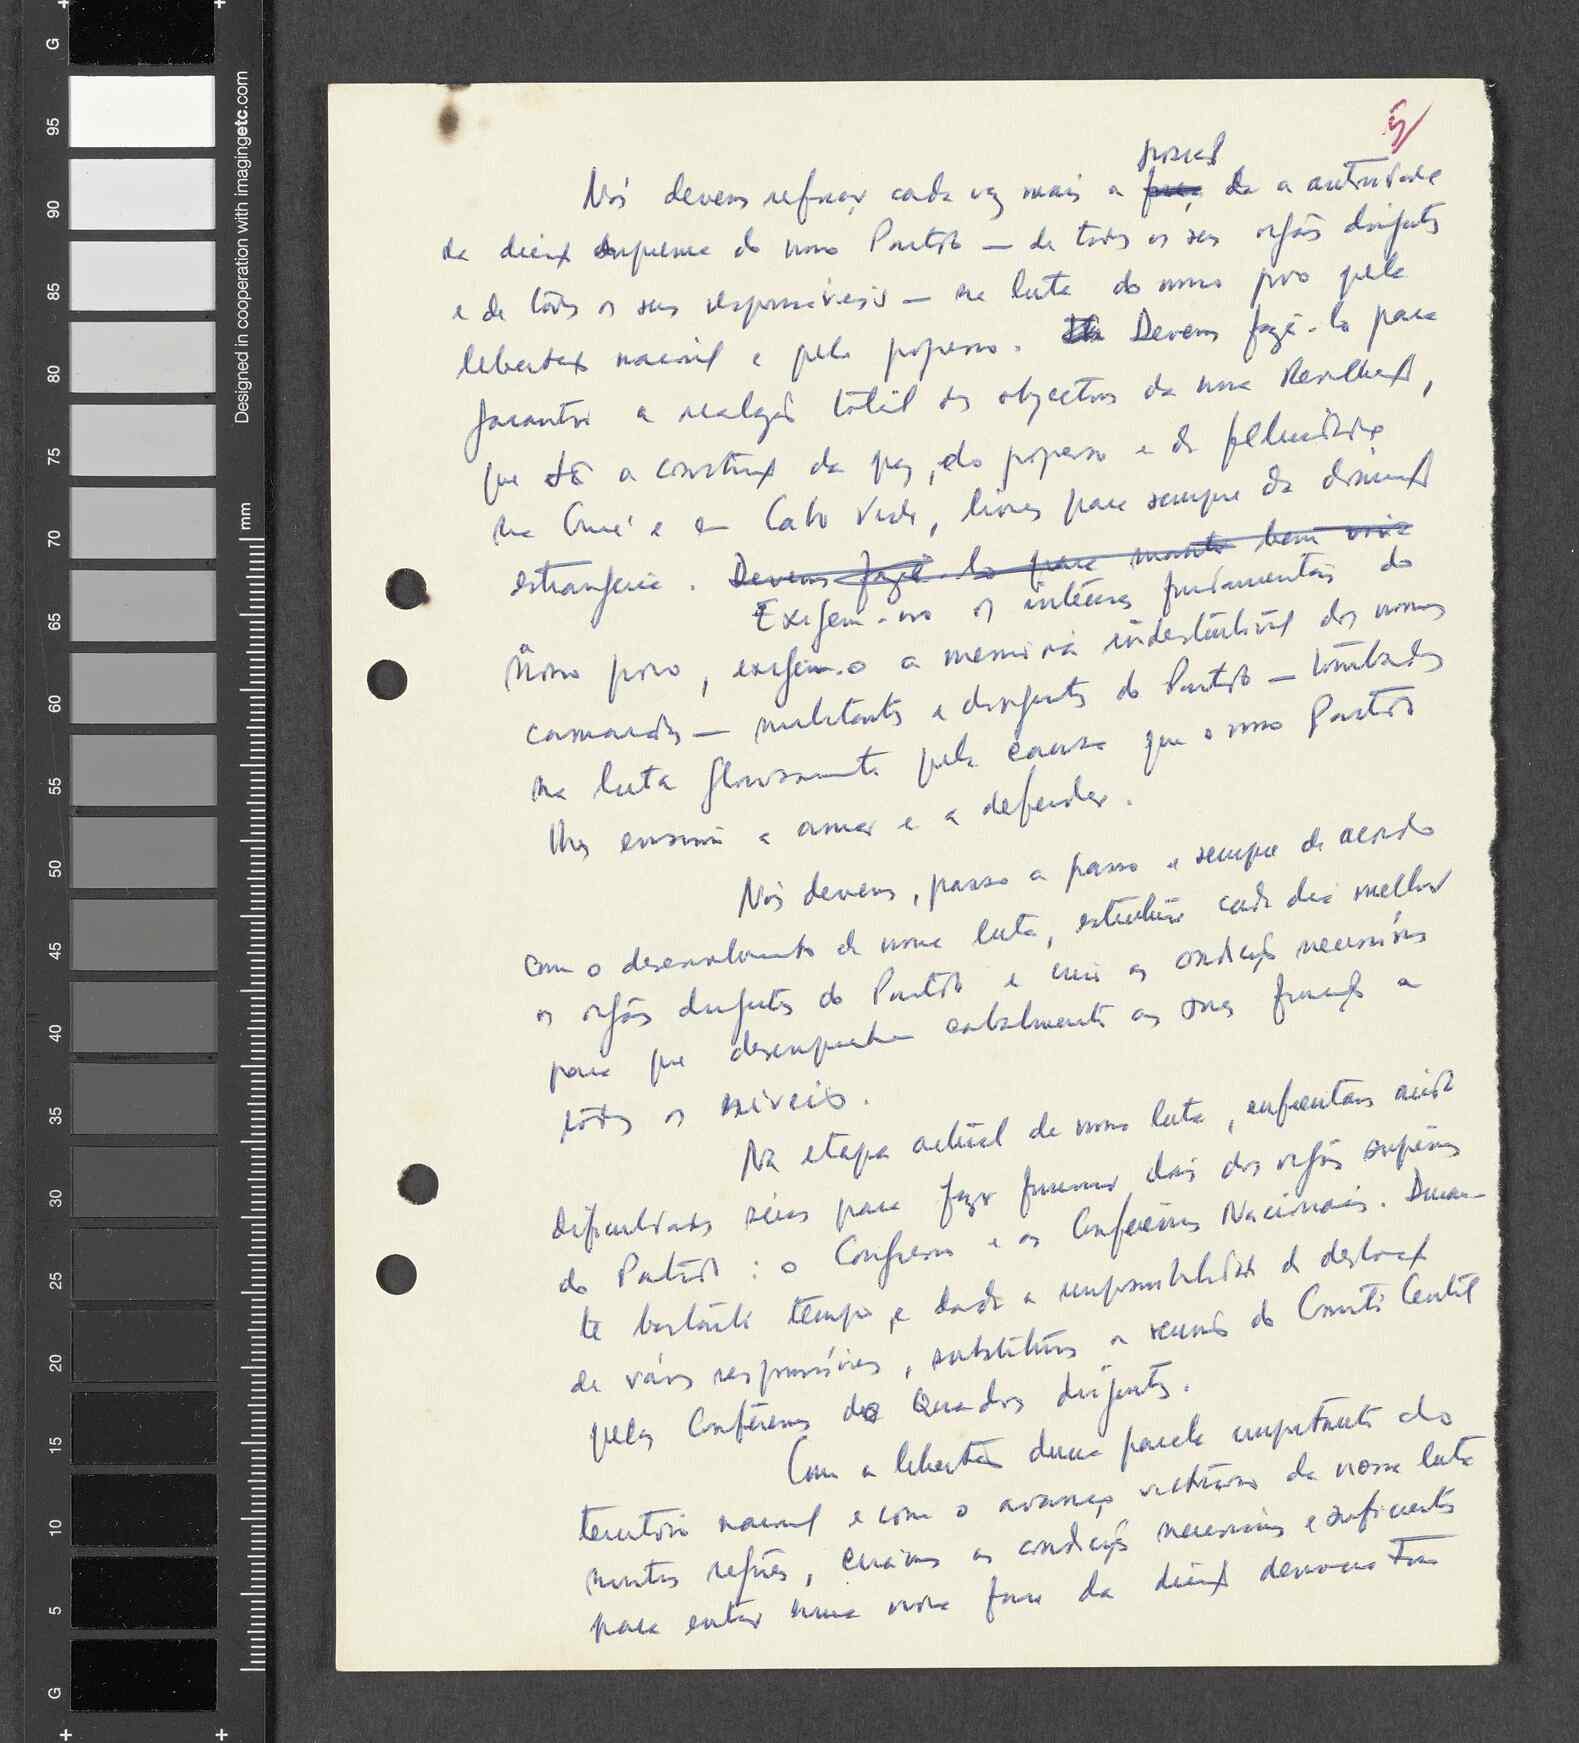 5
Nós devemos reforçar cada vez mais a a autoridade
da direcç. suprema do nosso Partido — de todos os seus orgãos dirigentes
e de todos os seus responsáveis — na luta do nosso povo pela
libertação nacional e pelo progresso. Devemos fazê-lo para
garantir a realização total dos objectivos da nossa Revolução,
que são a construção da paz, do progresso e da felicidade
na Guiné e em Cabo Verde, livres para sempre da dominação
estrangeira. Devemos fazê-lo para
Exigem-no os interesses fundamentais do
nosso povo, exigem-o a memória indestrutível dos nossos
camaradas — militantes e dirigentes do Partido — tombados
na luta gloriosamente pela causa que o nosso Partido
lhes ensinou a amar e a defender.
Nós devemos, passo a passo e sempre de acordo
com o desenvolvimento da nossa luta, estruturar cada dia melhor
os orgãos dirigentes do Partido e criar as condições necessárias
para que desempenhem cabalmente as suas funções a
todos os níveis.
Na etapa actual da nossa luta, enfrentamos ainda
dificuldades sérias para fazer funcionar dois dos orgãos supremos
do Partido : o Congresso e as Conferências Nacionais. Duran-
te bastante tempo, e dada a impossibilidade de deslocação
de vários responsáveis, substituímos as reuniões do Comité Central
pelas Conferências dos Quadros dirigentes.
Com a libertação duma parcela importante do
território nacional e com o avanço vitorioso da nossa luta
muitas regiões, criámos as condições necessárias e suficientes
para entrar numa nova fase da direcção